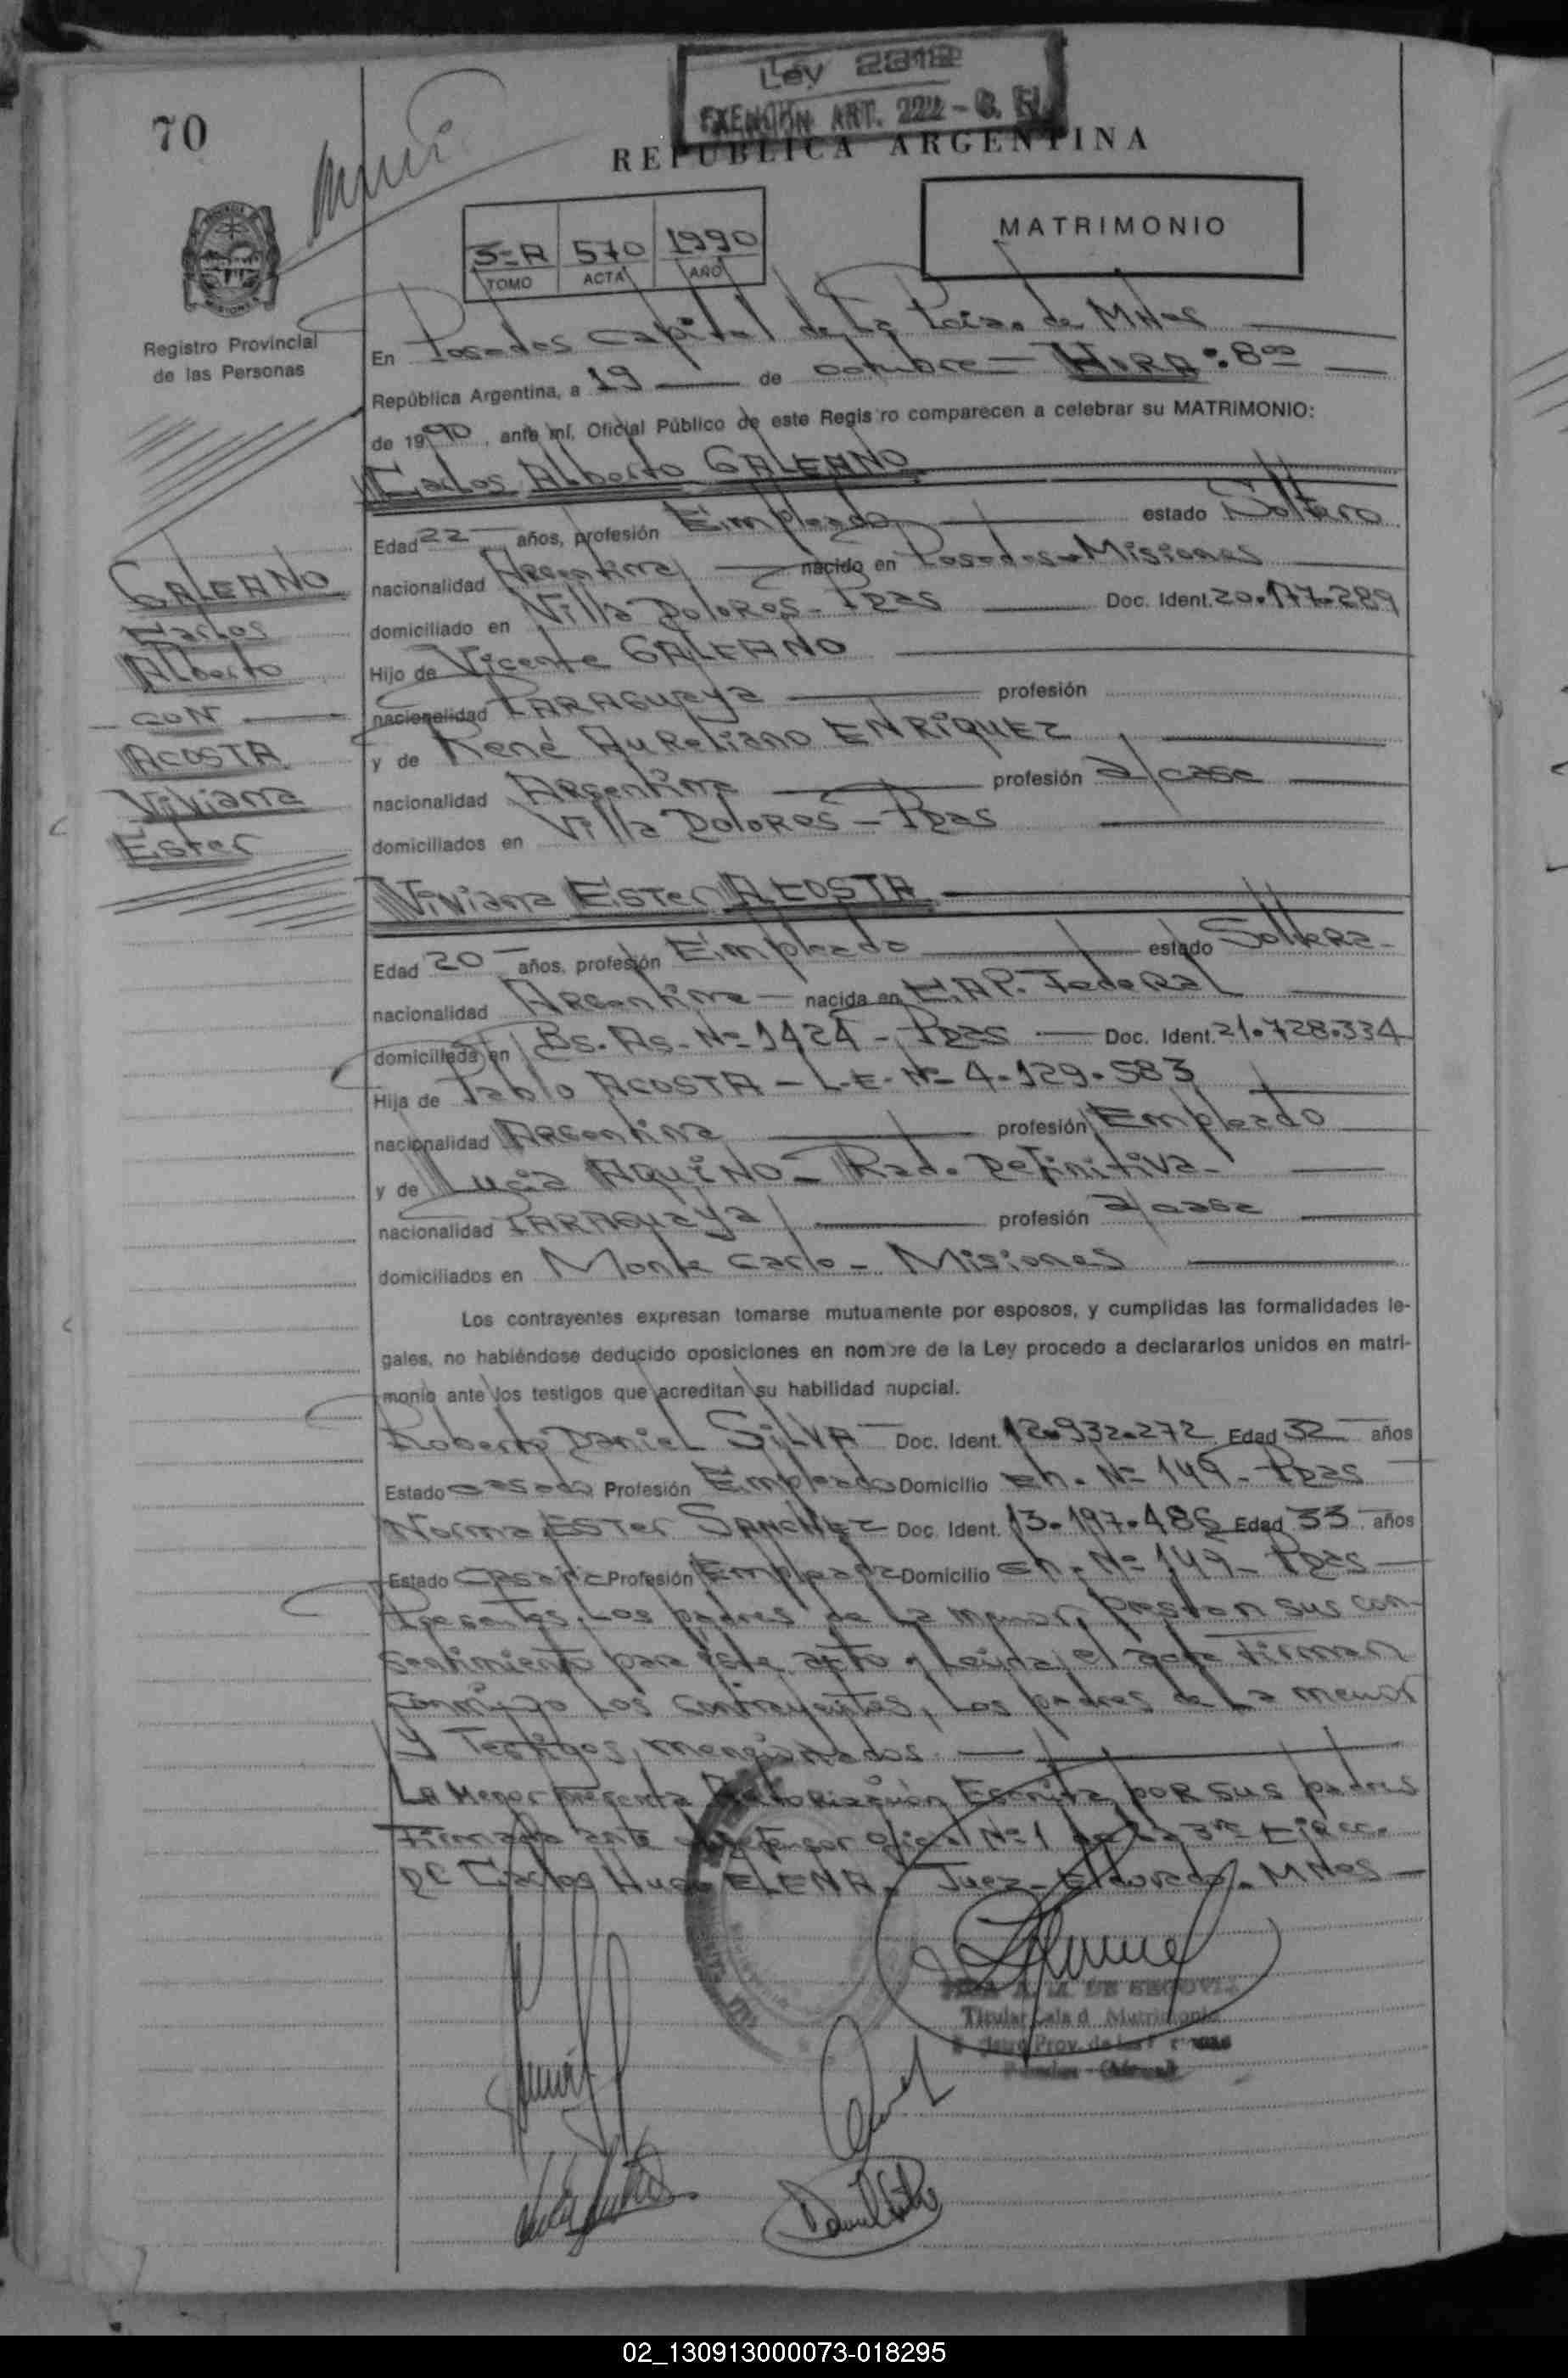 Ley 2312
EXENCION ART. 222 - C. F.
70
REPUBLICA ARGENTINA
MATRIMONIO
3=A 570 1990
TOMO ACTA AÑO
Registro Provincial
de las Personas
En Posadas Capital de la Pcia. de Mnes
República Argentina, a 19 de octubre - HORA: 8°°
de 1990, ante mí, Oficial Público de este Registro comparecen a celebrar su MATRIMONIO:
Carlos Alberto GALEANO
Edad 22 años, profesión Empleado estado Soltero
nacionalidad Argentina nacido en Posadas-Misiones
domiciliado en Villa Dolores - Pdas Doc. Ident. 20.177.289
Hijo de Vicente GALEANO
nacionalidad PARAGUAYA profesión
y de René Aureliano ENRIQUEZ
nacionalidad Argentina profesión a/casa
domiciliados en Villa Dolores - Pdas
GALEANO
Carlos
Alberto
- CON -
ACOSTA
Viviana
Ester
Viviana Ester ACOSTA
Edad 20 años, profesión Empleada estado Soltera -
nacionalidad Argentina - nacida en CAP. Federal
domiciliada en Bs. As. Nº 1424 - Pdas - Doc. Ident. 21.728.334
Hija de Pablo ACOSTA - L.E. Nº 4.129.583
nacionalidad Argentina profesión Empleado
y de Lucia AQUINO - Rad. Definitiva -
nacionalidad PARAGUAYA profesión a/casa
domiciliados en Monte Carlo - Misiones
Los contrayentes expresan tomarse mutuamente por esposos, y cumplidas las formalidades le-
gales, no habiéndose deducido oposiciones en nombre de la Ley procedo a declararlos unidos en matri-
monio ante los testigos que acreditan su habilidad nupcial.
Roberto Daniel SILVA - Doc. Ident. 12.932.272 Edad 32 años
Estado casado Profesión Empleado Domicilio Ch. Nº 149 - Pdas
Norma Ester SANCHEZ Doc. Ident. 13.197.486 Edad 33 años
Estado casada Profesión Empleada Domicilio Ch. Nº 149 - Pdas
Presentes, Los padres de La menor, prestan sus con-
sentimiento para este acto y Leída el acta Firman
conmigo Los contrayentes, Los padres de La menor
y Testigos mencionados.
La Menor presenta Autorización Escrita por sus padres
Firmado ante Defensor Oficial Nº 1 de la 3ra Circc.
DR Carlos Hugo ELENA. Juez - Eldorado. Mnes -
A. M. DE SEGOVIA
Titular Sala d Matrimonio
Prov. de las
02_130913000073-018295